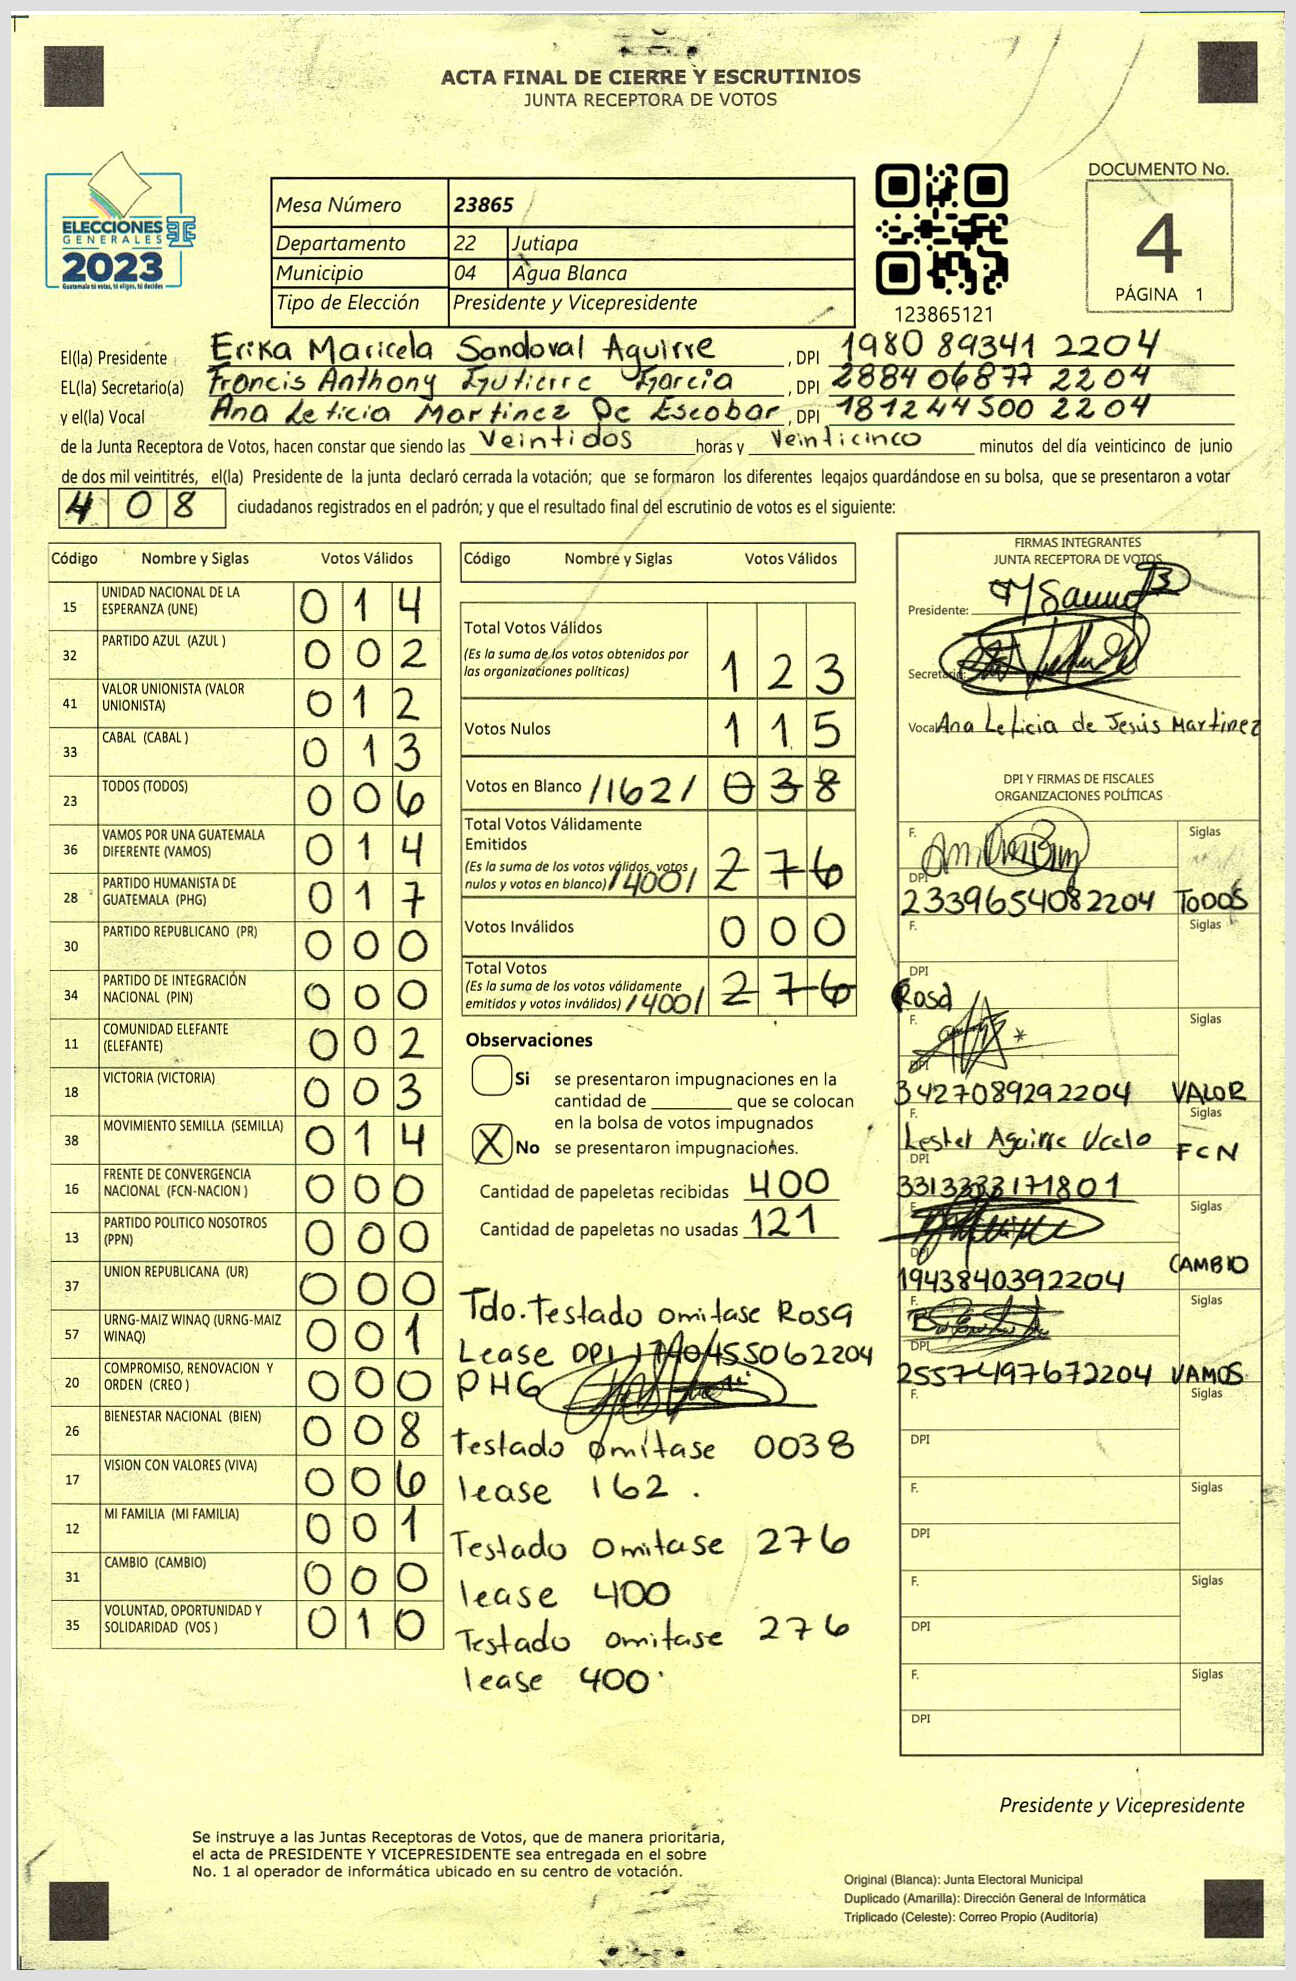 ACTA FINAL DE CIERRE Y ESCRUTINIOS
JUNTA RECEPTORA DE VOTOS
ELECCIONES
GENERALES
2023
Guatemala tú votas, tú eliges, tú decides
Mesa Número 23865
Departamento 22 Jutiapa
Municipio 04 Agua Blanca
Tipo de Elección Presidente y Vicepresidente
123865121
DOCUMENTO No.
4
PÁGINA 1
El(la) Presidente Erika Maricela Sandoval Aguirre, DPI 1980 89341 2204
EL(la) Secretario(a) Francis Anthony Gutierre Garcia, DPI 2884 06877 2204
y el(la) Vocal Ana Leticia Martinez De Escobar, DPI 1812 44500 2204
de la Junta Receptora de Votos, hacen constar que siendo las Veintidos horas y Veinticinco minutos del día veinticinco de junio
de dos mil veintitrés, el(la) Presidente de la junta declaró cerrada la votación; que se formaron los diferentes legajos guardándose en su bolsa, que se presentaron a votar
408 ciudadanos registrados en el padrón; y que el resultado final del escrutinio de votos es el siguiente:
Código Nombre y Siglas Votos Válidos
15 UNIDAD NACIONAL DE LA ESPERANZA (UNE) 014
32 PARTIDO AZUL (AZUL ) 002
41 VALOR UNIONISTA (VALOR UNIONISTA) 012
33 CABAL (CABAL ) 013
23 TODOS (TODOS) 006
36 VAMOS POR UNA GUATEMALA DIFERENTE (VAMOS) 014
28 PARTIDO HUMANISTA DE GUATEMALA (PHG) 017
30 PARTIDO REPUBLICANO (PR) 000
34 PARTIDO DE INTEGRACIÓN NACIONAL (PIN) 000
11 COMUNIDAD ELEFANTE (ELEFANTE) 002
18 VICTORIA (VICTORIA) 003
38 MOVIMIENTO SEMILLA (SEMILLA) 014
16 FRENTE DE CONVERGENCIA NACIONAL (FCN-NACION ) 000
13 PARTIDO POLITICO NOSOTROS (PPN) 000
37 UNION REPUBLICANA (UR) 000
57 URNG-MAIZ WINAQ (URNG-MAIZ WINAQ) 001
20 COMPROMISO, RENOVACION Y ORDEN (CREO ) 000
26 BIENESTAR NACIONAL (BIEN) 008
17 VISION CON VALORES (VIVA) 006
12 MI FAMILIA (MI FAMILIA) 001
31 CAMBIO (CAMBIO) 000
35 VOLUNTAD, OPORTUNIDAD Y SOLIDARIDAD (VOS ) 010
Código Nombre y Siglas Votos Válidos
Total Votos Válidos
(Es la suma de los votos obtenidos por
las organizaciones políticas) 123
Votos Nulos 115
Votos en Blanco /162/ 038
Total Votos Válidamente
Emitidos
(Es la suma de los votos válidos, votos
nulos y votos en blanco) /400/ 276
Votos Inválidos 000
Total Votos
(Es la suma de los votos válidamente
emitidos y votos inválidos) /400/ 276
Observaciones
Si se presentaron impugnaciones en la
cantidad de ________ que se colocan
en la bolsa de votos impugnados
X No se presentaron impugnaciones.
Cantidad de papeletas recibidas 400
Cantidad de papeletas no usadas 121
Tdo. Testado omitase Rosa
Lease DPI 1740455062204
PHG
Testado omitase 0038
lease 162.
Testado omitase 276
lease 400
Testado omitase 276
lease 400.
FIRMAS INTEGRANTES
JUNTA RECEPTORA DE VOTOS
Presidente:
Secretario:
Vocal Ana Leticia de Jesús Martinez
DPI Y FIRMAS DE FISCALES
ORGANIZACIONES POLÍTICAS
F. Siglas
DPI
2339654082204 TODOS
F. Siglas
DPI
Rosa
F. Siglas
DPI
3427089292204 VALOR
F. Siglas
Lester Aguirre Ucelo FCN
DPI
3313333171801
F. Siglas
DPI
1943840392204 CAMBIO
F. Siglas
DPI
2557497672204 VAMOS
F. Siglas
DPI
F. Siglas
DPI
F. Siglas
DPI
F. Siglas
DPI
Presidente y Vicepresidente
Se instruye a las Juntas Receptoras de Votos, que de manera prioritaria,
el acta de PRESIDENTE Y VICEPRESIDENTE sea entregada en el sobre
No. 1 al operador de informática ubicado en su centro de votación.
Original (Blanca): Junta Electoral Municipal
Duplicado (Amarilla): Dirección General de Informática
Triplicado (Celeste): Correo Propio (Auditoría)